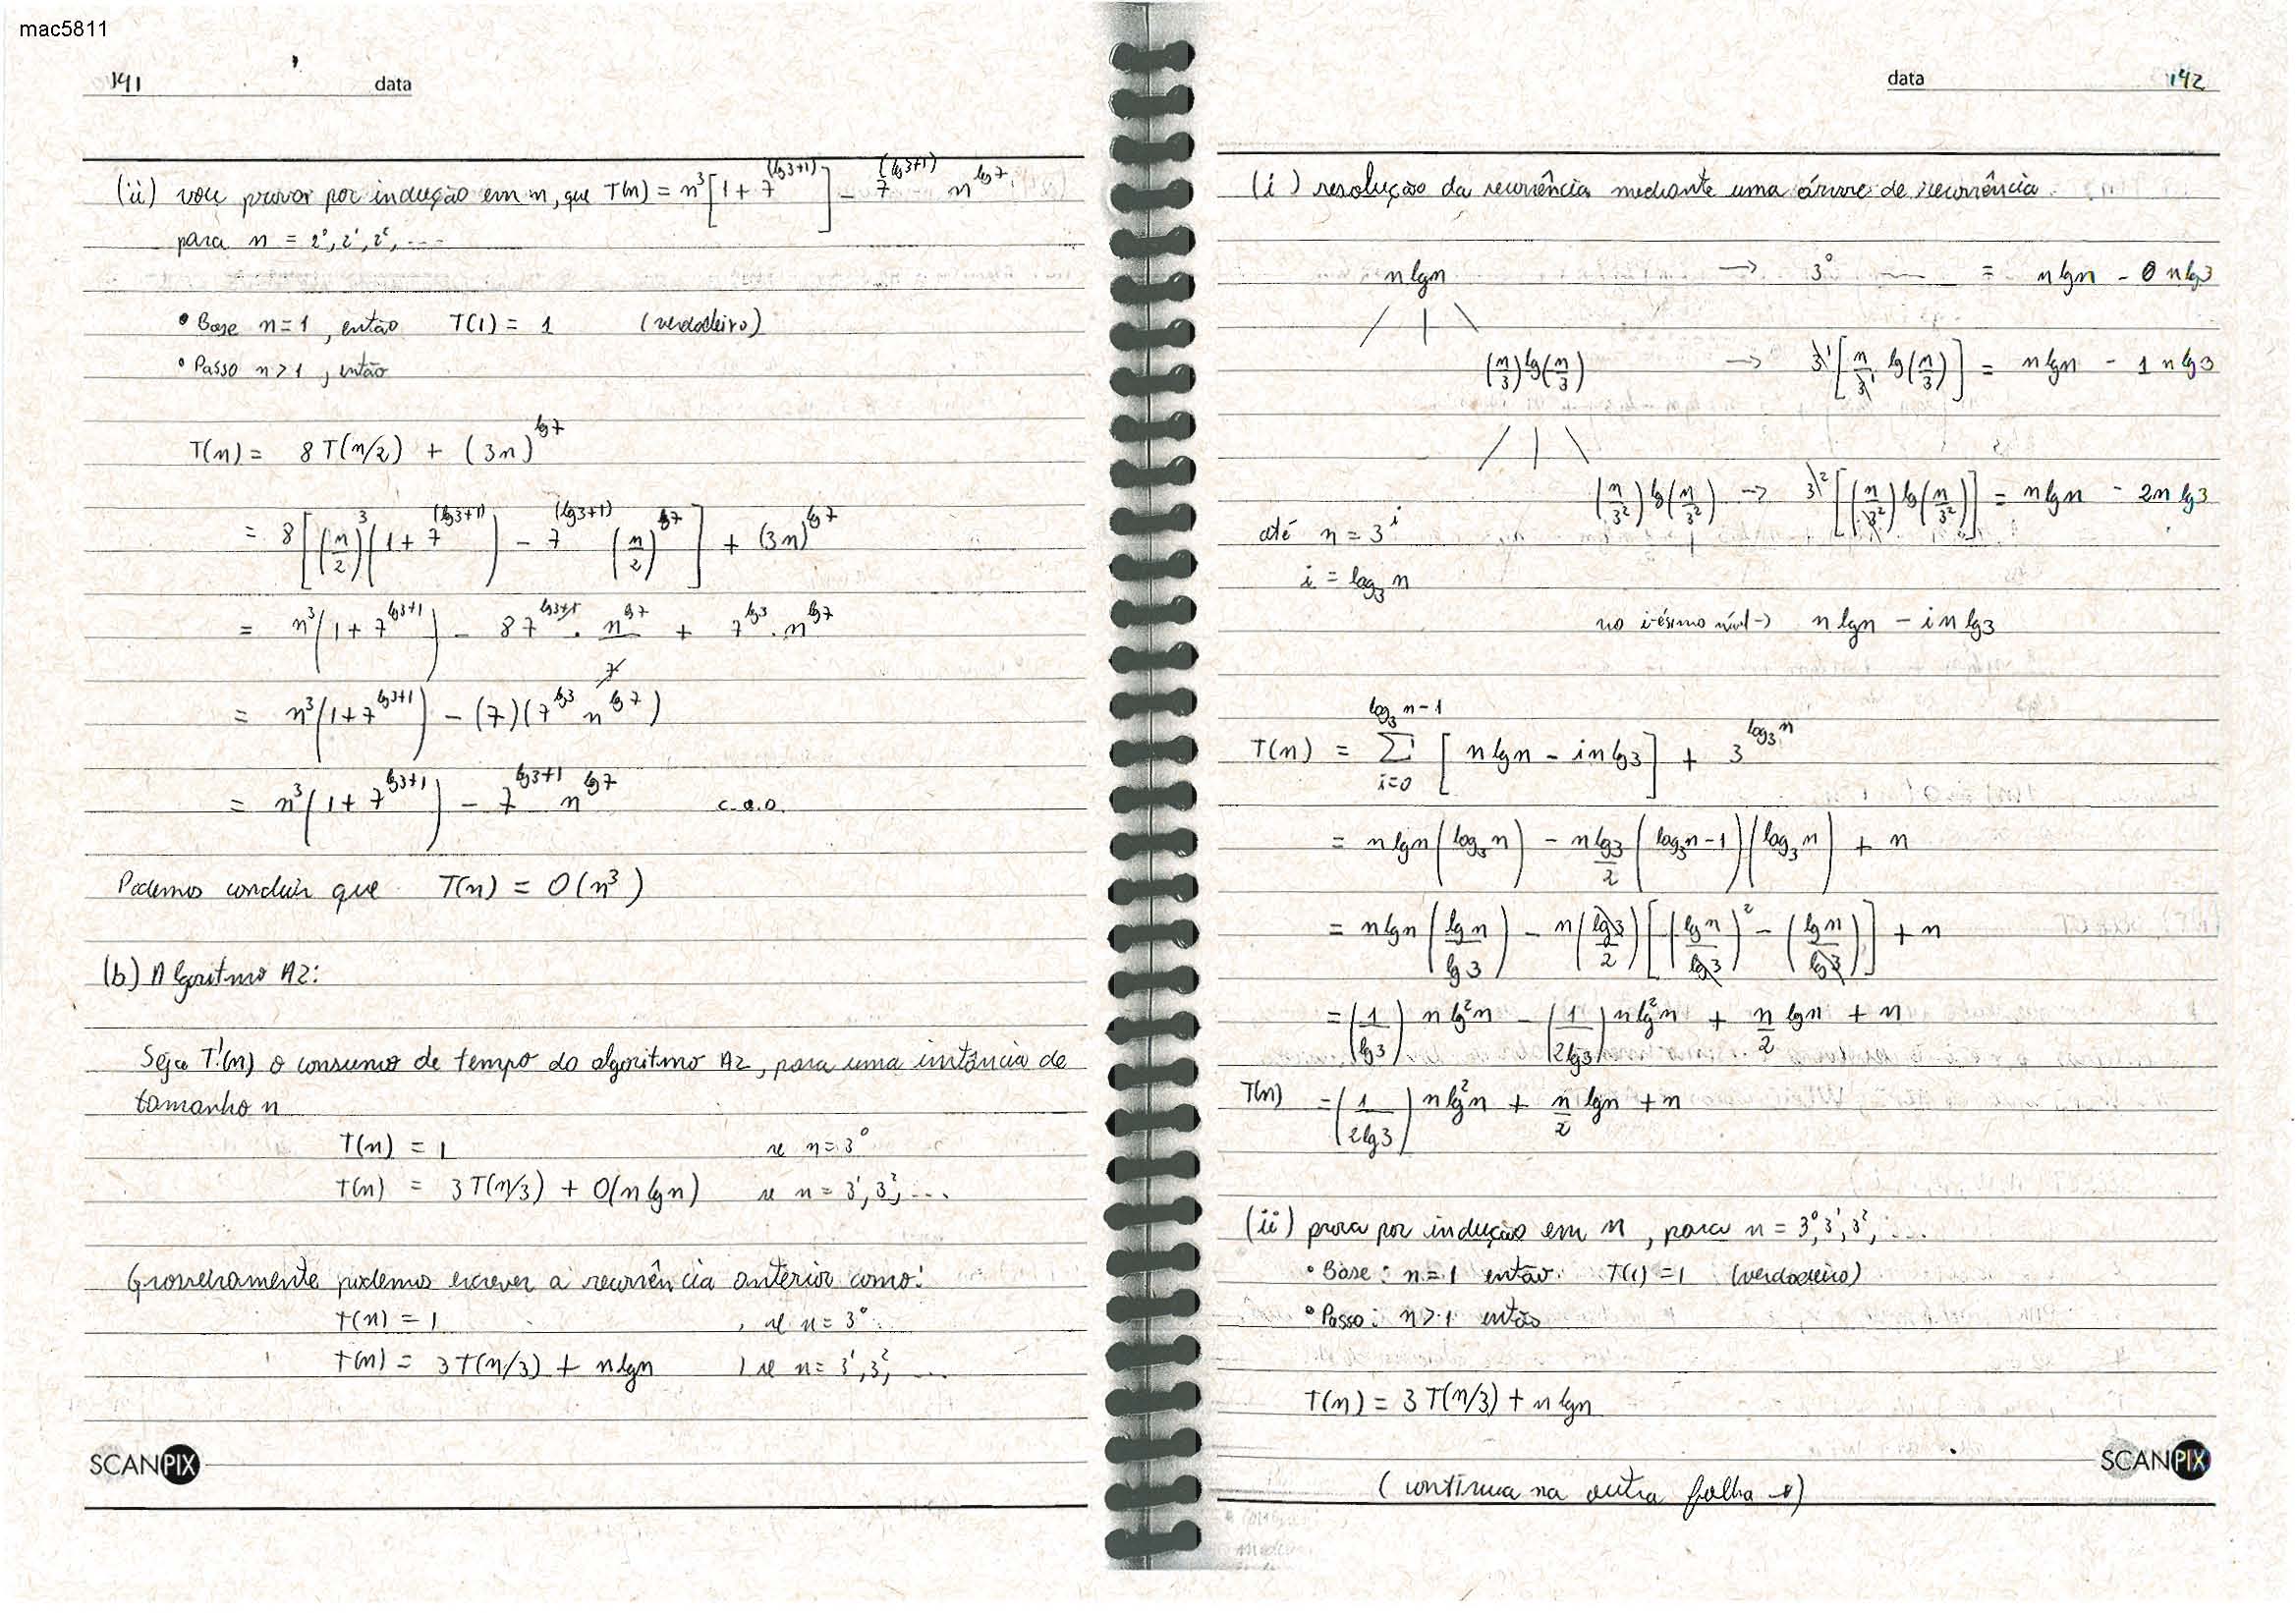 mac5811
141 data
(ii) vou provar por indução em n, que T(n) = n³[1 + 7^(lg3+1)] - 7^(lg3+1) n^lg7
para n = 2⁰, 2¹, 2², ...
• Base n=1, então T(1) = 1 (verdadeiro)
• Passo n>1, então
T(n) = 8T(n/2) + (3n)^lg7
= 8[(n/2)³(1 + 7^(lg3+1)) - 7^(lg3+1) (n/2)^lg7] + (3n)^lg7
= n³(1 + 7^(lg3+1)) - 8 7^(lg3+1) · n^lg7/7 + 7^lg3 · n^lg7
= n³(1 + 7^(lg3+1)) - (7)(7^lg3 n^lg7)
= n³(1 + 7^(lg3+1)) - 7^(lg3+1) n^lg7 c.q.o.
Podemos concluir que T(n) = O(n³)
(b) Algoritmo A2:
Seja T(n) o consumo de tempo do algoritmo A2, para uma instância de
tamanho n
T(n) = 1 se n = 3⁰
T(n) = 3T(n/3) + O(n lgn) se n = 3¹, 3², ...
Grosseiramente podemos escrever a recurrência anterior como:
T(n) = 1 , se n = 3⁰
T(n) = 3T(n/3) + n lgn , se n = 3¹, 3², ...
SCANPIX
data 142
(i) resolução da recurrência mediante uma árvore de recorrência.
n lgn → 3⁰ — = n lgn - 0 n lg3
(n/3) lg(n/3) → 3¹[n/3¹ lg(n/3)] = n lgn - 1 n lg3
(n/3²) lg(n/3²) → 3²[(n/3²) lg(n/3²)] = n lgn - 2n lg3
até n = 3^i
i = log₃ n
no i-ésimo nível → n lgn - i n lg3
T(n) = Σ_{i=0}^{log₃ n-1} [n lgn - i n lg3] + 3^(log₃ n)
= n lgn (log₃ n) - n lg3/2 (log₃ n - 1)(log₃ n) + n
= n lgn (lgn/lg3) - n(lg3/2)[(lgn/lg3)² - (lgn/lg3)] + n
= (1/lg3) n lg²n - (1/2lg3) n lg²n + n/2 lgn + n
T(n) = (1/2lg3) n lg²n + n/2 lgn + n
(ii) prova por indução em n, para n = 3⁰, 3¹, 3², ...
• Base: n=1 então T(1) = 1 (verdadeiro)
• Passo: n>1 então
T(n) = 3T(n/3) + n lgn
SCANPIX
(continua na outra folha →)